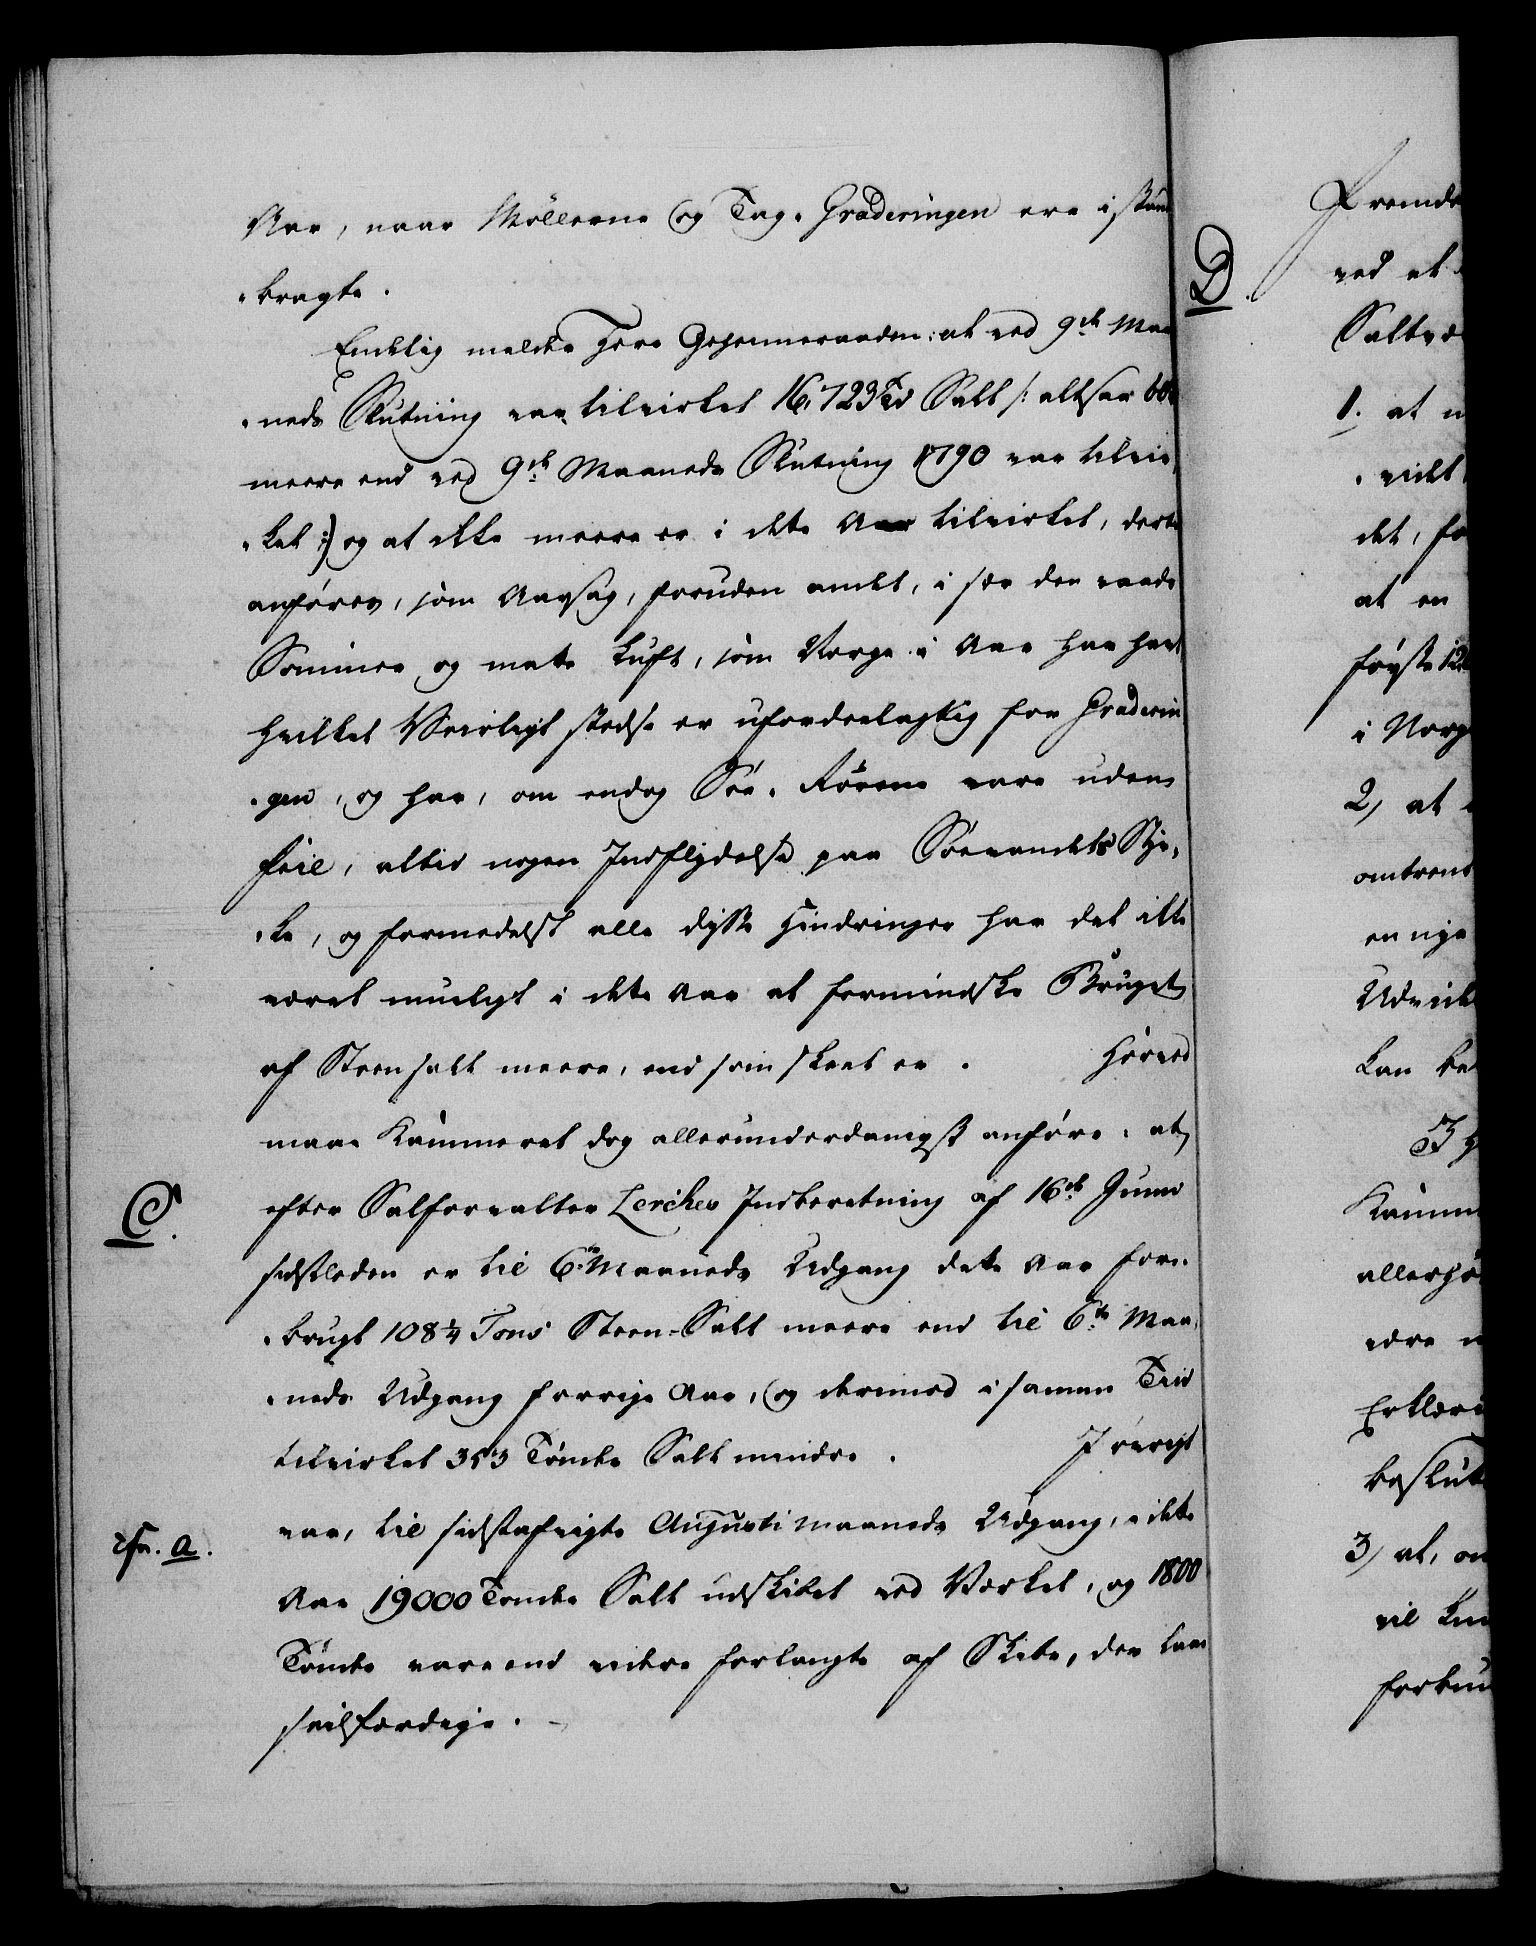 Aar, naar Möllerne og Tag-Graderingen ere istand
-bragte.
Endelig melder Herr Geheimeraaden: at ved 9de Maa
-neds Slutning var tilvirket 16,723 Tdr Salt /: altsaa
meere end ved 9de Maaneds Slutning 1790 var tilvir-
-ket :/ og at ikke meere er i dette Aar tilvirket, dertil
anføres, som Aarsag, foruden andet, i sær den vaade
Sommer og matte Luft, som Norge i Aar har havt
hvilket Veirligt stedse er ufordeelagtig for Graderin
-gen, og har, om endog Søe-Rørene vare uden
Feil, altid nogen Indflydelse paa Søevandets Styr-
-ke, og formedelst alle disse Hindringer har det ikke
været mueligt i dette Aar at formindske Bruget
af Steensalt meere, end som skeet er. Hørved
maae Kammeret dog allerunderdanigst anføre, at
efter Saltforvalter Lerches Indberetning af 16de Junii
sidstleden er til 6te Maaneds Udgang dette Aar for-
-brugt 108 1/4 Tons Steen-Salt meere end til 6te Maa-
-neds Udgang forrige Aar, og derimod i samme Tiid
tilvirket 353 Tønder Salt mindre. I øvrigt
var, til sidstafvigte Augusti Maaneds Udgang, i dette
Aar 19000 Tønder Salt udskibet ved Værket, og 1800
Tønder vare end videre forlangte af Skibe, der laae
seilfærdige.
C.
cfr. a.
D.
Fremde
ved at
Saltvæ
1. at
-vidt
det, fo
at en
første 12
i Norg
2, at
omtrent
en nye
Udvid
kan be
Kamm
allerhø
være
Erklæri
beslut
3, at, om
vil
forbun